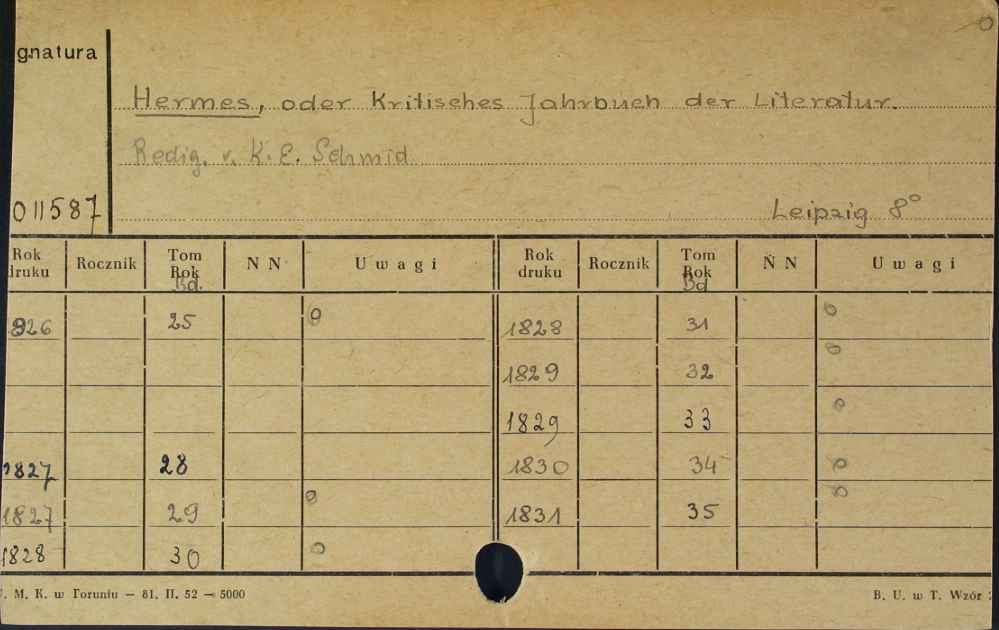 gnatura
Hermes, oder Kritisches Jahrbuch der Literatur.
Redig. v. K. E. Schmid
011587
Leipzig 8°
Rok druku Rocznik Tom Rok Bd. N N Uwagi Rok druku Rocznik Tom Rok Bd N N Uwagi
826 25 o 1828 31 o
1829 32 o
1829 33 o
1827 28 1830 34 o
1827 29 o 1831 35 o
1828 30 o
. M. K. w Toruniu — 81. II. 52 — 5000
B. U. w T. Wzór